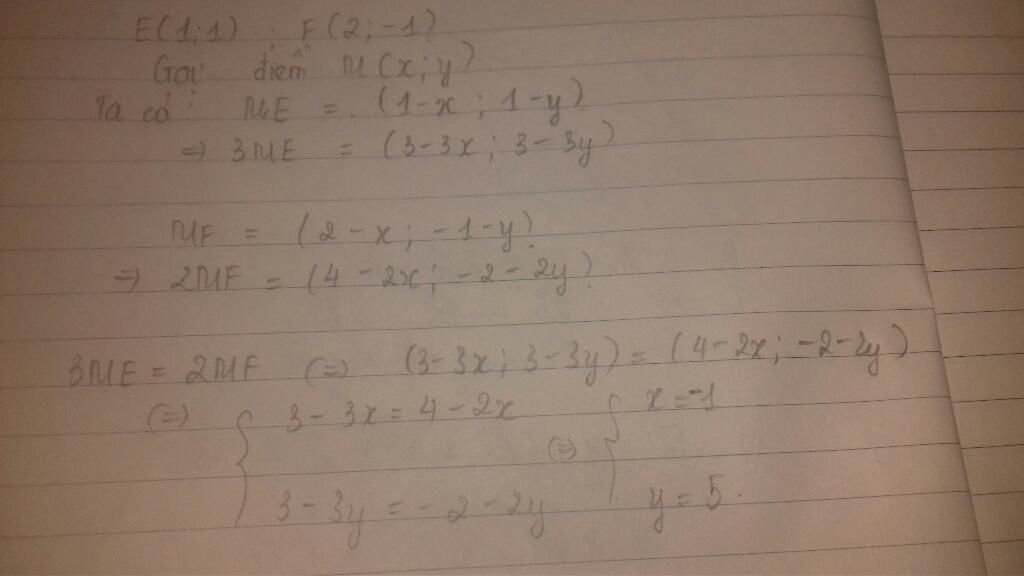 E(1;1) ; F(2;-1)
Gọi điểm M(x;y)
Ta có: ME = (1-x ; 1-y)
=> 3ME = (3-3x ; 3-3y)
MF = (2-x ; -1-y)
=> 2MF = (4-2x ; -2-2y)
3ME = 2MF (=) (3-3x ; 3-3y) = (4-2x ; -2-2y)
(=) { 3-3x = 4-2x (=) { x=-1
3-3y = -2-2y y=5.